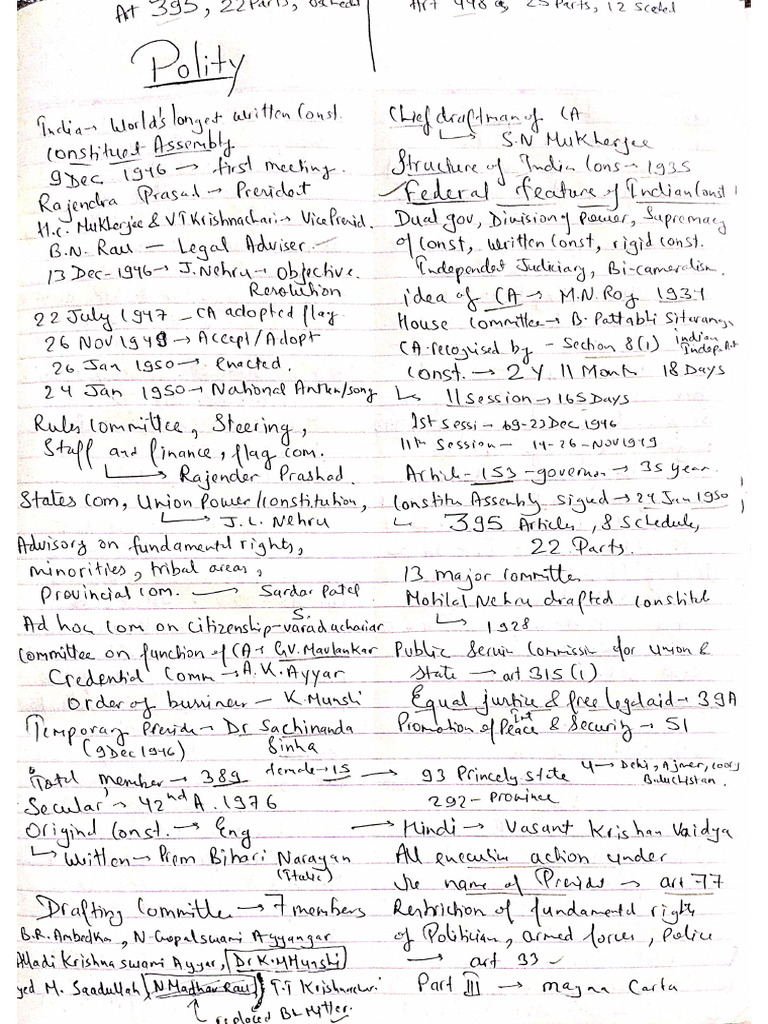 Art 395, 22 Parts,
Art 448, 25 Parts, 12 Sceted
Polity
India → World's longest written Const.
Constituent Assembly
9 Dec 1946 → first meeting.
Rajendra Prasad → President
H.C. Mukherjee & VT Krishnachari → Vice Presid.
B.N. Rau — Legal Adviser
13 Dec - 1946 → J. Nehru → Objective
Resolution
22 July 1947 - CA adopted flag
26 Nov 1949 → Accept/Adopt
26 Jan 1950 → enacted.
24 Jan 1950 → National Anthem/song
Rules Committee, Steering,
Staff and finance, flag com.
↳ Rajender Prashad.
States com, Union Power/constitution,
↳ J.L. Nehru
Advisory on fundamental rights,
minorities, tribal areas,
Provincial com. → Sardar Patel
Ad hoc Com on Citizenship - S. varadachariar
Committee on function of CA → G.V. Mavlankar
Credential Comm → A.K. Ayyar
Order of business — K. Munshi
Temporary Preside → Dr Sachinanda
(9 Dec 1946) Sinha
Total member → 389 female → 15 → 93 Princely state 4 → Delhi, Ajmer, coorg
Baluchistan.
292 - Province
Secular → 42nd A. 1976
Original Const. → Eng → Hindi → Vasant Krishan Vaidya
↳ Written → Prem Bihari Narayan
(Italic)
Drafting Committee → 7 members
B.R. Ambedkar, N. Gopalswami Ayyangar
Alladi Krishna swami Ayyar, Dr K.M Munshi
yed M. Saadullah, N Madhav Rau, T.T Krishnamachari
↑ replaced BL Mitter.
Chief draftman of CA
↳ S.N Mukherjee
Structure of India Cons → 1935
Federal feature of Indian Const
Dual gov, Division of power, Supremacy
of const, written const, rigid const.
Independent Judiciary, Bi-cameralism.
idea of CA → M.N. Roy 1934
House Committee → B. Pattabhi Sitaramayya
CA recognised by - Section 8(1) indian
Indep. Act
Const. → 2 Y 11 Month 18 Days
↳ 11 Session → 165 Days
1st Sessi - 09-23 Dec 1946
11th Session - 14-26-Nov 1949
Article - 153 - governor → 35 year.
Constitu Assembly signed → 24 Jan 1950
↳ 395 Articles, 8 Schedule,
22 Parts.
13 major committee
Motilal Nehru drafted constitut
↳ 1928
Public Servic Commissi for union &
State → art 315(1)
Equal justice & free legal aid → 39A
Promotion of Int Peace & Security → 51
All executive action under
the name of Presidt → art 77
Restriction of fundamental rights
of Politician, armed forces, Police
→ art 33
Part III → magna Carta